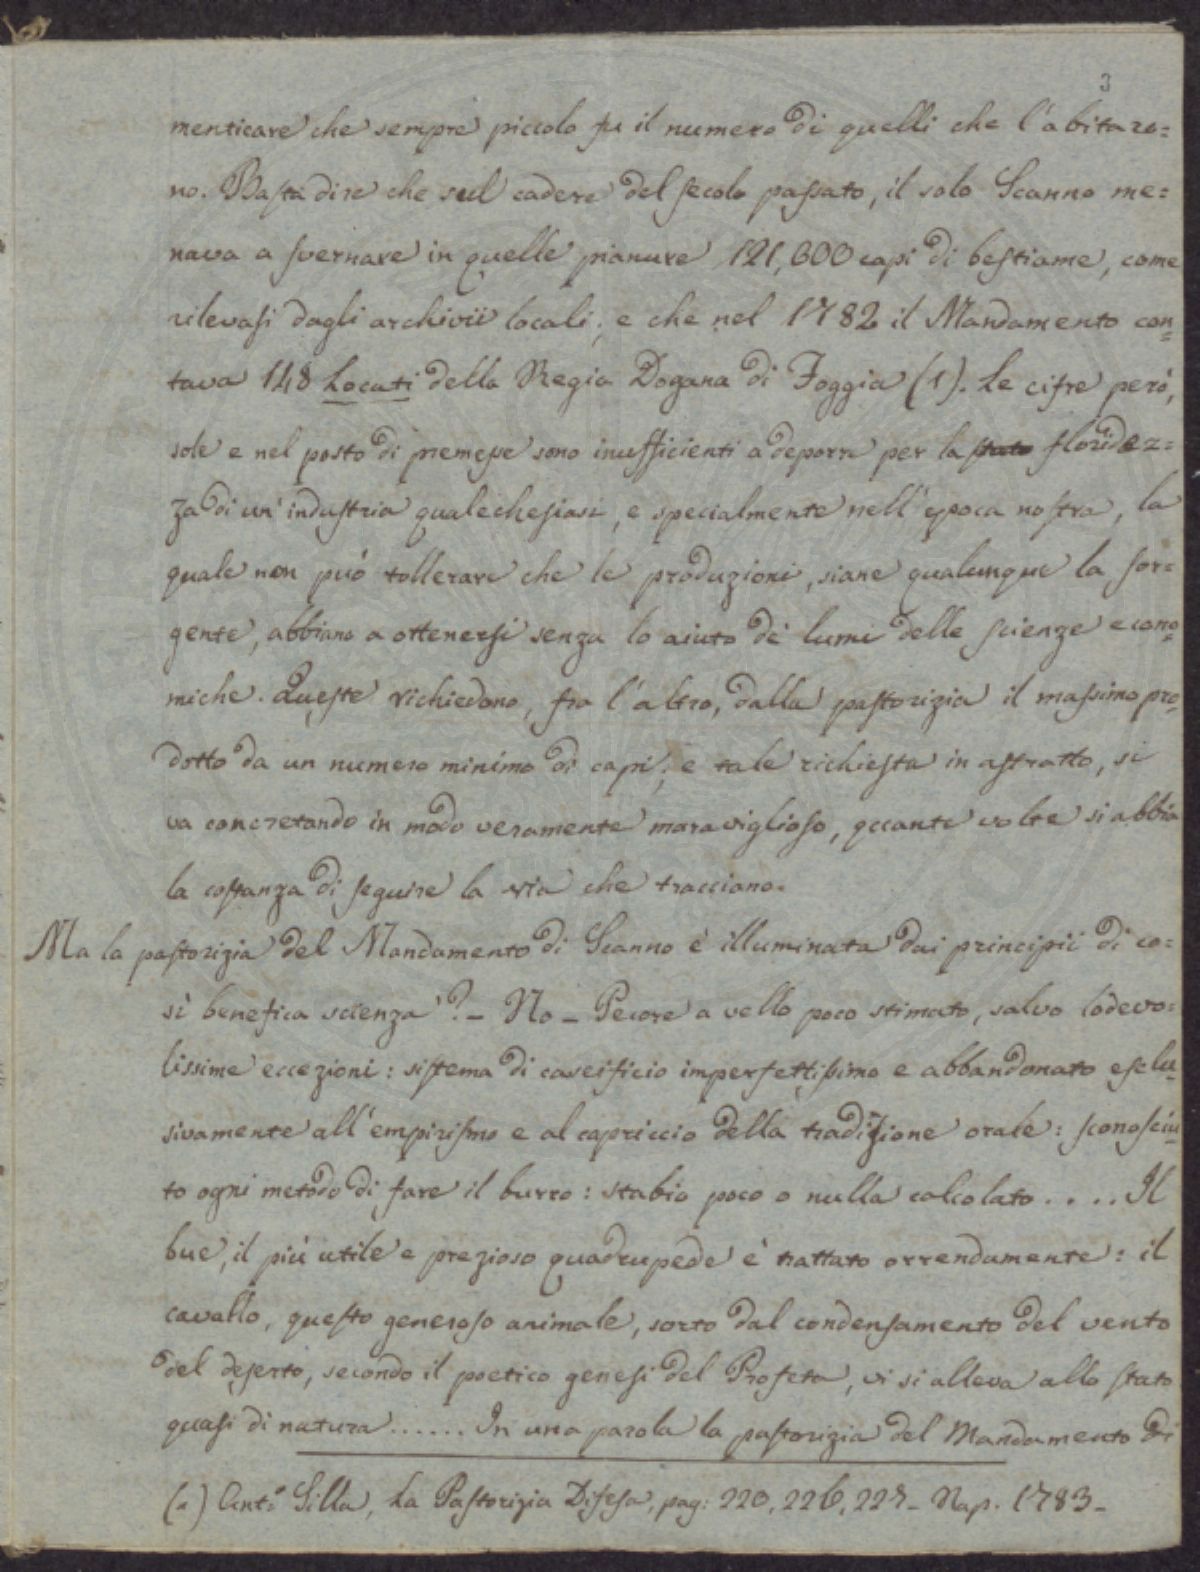 3
menticare che sempre piccolo fu il numero di quelli che l'abitaro=
no. Basta dire che sul cadere del secolo passato, il solo Scanno me=
nava a svernare in quelle pianure 121,000 capi di bestiame, come
rilevasi dagli archivii locali; e che nel 1782 il Mandamento con=
tava 148 Locati della Regia Dogana di Foggia (1). Le cifre però,
sole e nel posto di premesse sono insufficienti a deporre per la stato floridez=
za di un'industria qualechesiasi, e specialmente nell'epoca nostra, la
quale non può tollerare che le produzioni, siane qualunque la sor=
gente, abbiano a ottenersi senza lo aiuto de' lumi delle scienze econo=
miche. Queste richiedono, fra l'altro, dalla pastorizia il massimo pro=
dotto da un numero minimo di capi; e tale richiesta in astratto, si
va concretando in modo veramente maraviglioso, quante volte si abbia
la costanza di seguire la via che tracciano.
Ma la pastorizia del Mandamento di Scanno è illuminata dai principii di co=
sì benefica scienza? - No - Pecore a vello poco stimato, salvo lodevo=
lissime eccezioni: sistema di caseificio imperfettissimo e abbandonato esclu=
sivamente all'empirismo e al capriccio della tradizione orale: sconosciu=
to ogni metodo di fare il burro: stabio poco o nulla calcolato .... Il
bue, il più utile e prezioso quadrupede è trattato orrendamente: il
cavallo, questo generoso animale, sorto dal condensamento del vento
del deserto, secondo il poetico genesi del Profeta, vi si alleva allo stato
quasi di natura ...... In una parola la pastorizia del Mandamento di
(1) Ant.o Silla, La Pastorizia Difesa, pag: 220, 226, 227 - Nap. 1783 -